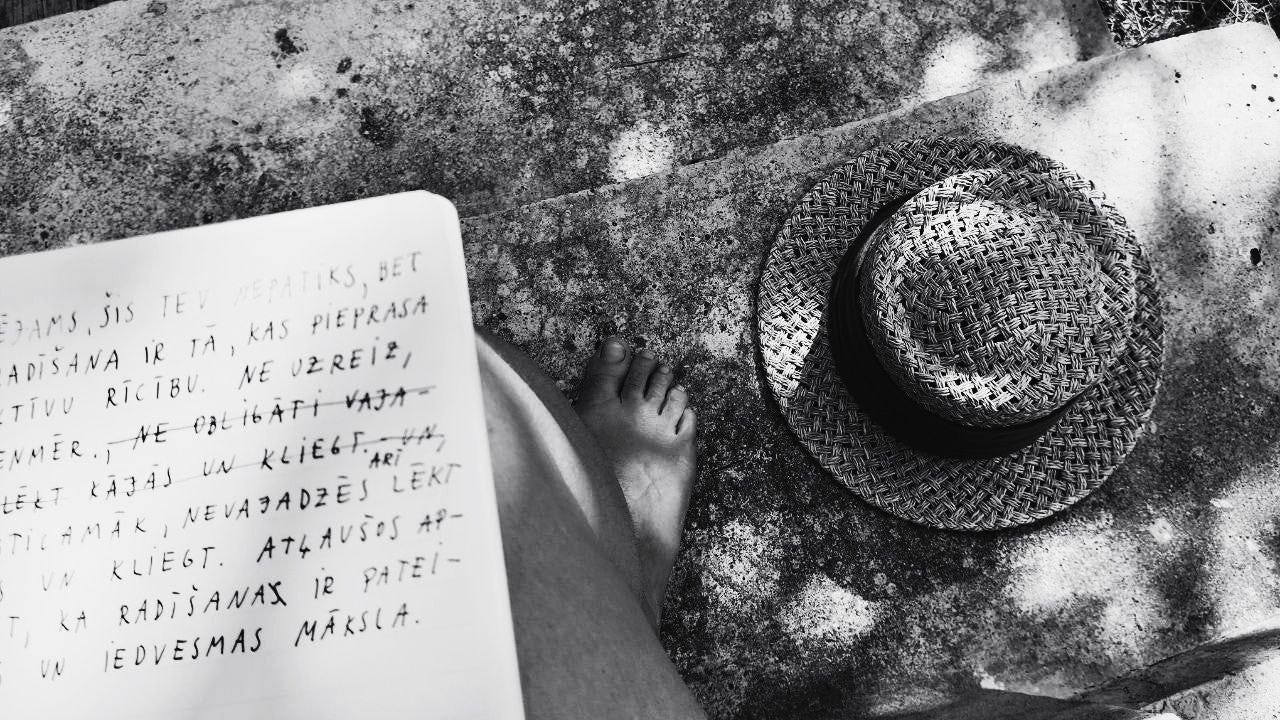 ĒJAMS, ŠIS TEV NEPATIKS, BET
RADĪŠANA IR TĀ, KAS PIEPRASA
KTĪVU RĪCĪBU. NE UZREIZ,
ENMĒR., NE OBLIGĀTI VAJA-
LĒKT KĀJĀS UN KLIEGT. UN,
ARĪ
TICAMĀK, NEVAJADZĒS LĒKT
S UN KLIEGT. ATĻAUŠOS AP-
T, KA RADĪŠANAS IR PATEI-
S UN IEDVESMAS MĀKSLA.